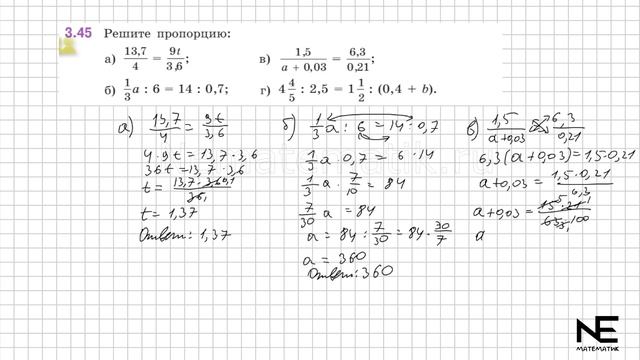 3.45 Решите пропорцию:
а) 13,7/4 = 9t/3,6;
в) 1,5/(a + 0,03) = 6,3/0,21;
б) 1/3 a : 6 = 14 : 0,7;
г) 4 4/5 : 2,5 = 1 1/2 : (0,4 + b).
а) 13,7/4 = 9t/3,6
4·9t = 13,7·3,6
36t = 13,7·3,6
t = 13,7·3,6 0,1/36 1
t = 1,37
Ответ: 1,37
б) 1/3 a : 6 = 14 : 0,7
1/3 a · 0,7 = 6·14
1/3 a · 7/10 = 84
7/30 a = 84
a = 84 : 7/30 = 84 · 30/7
a = 360
Ответ: 360
в) 1,5/(a+0,03) = 6,3/0,21
6,3(a+0,03) = 1,5·0,21
a+0,03 = 1,5·0,21/6,3
a+0,03 =
a
NE
МАТЕМАТИК